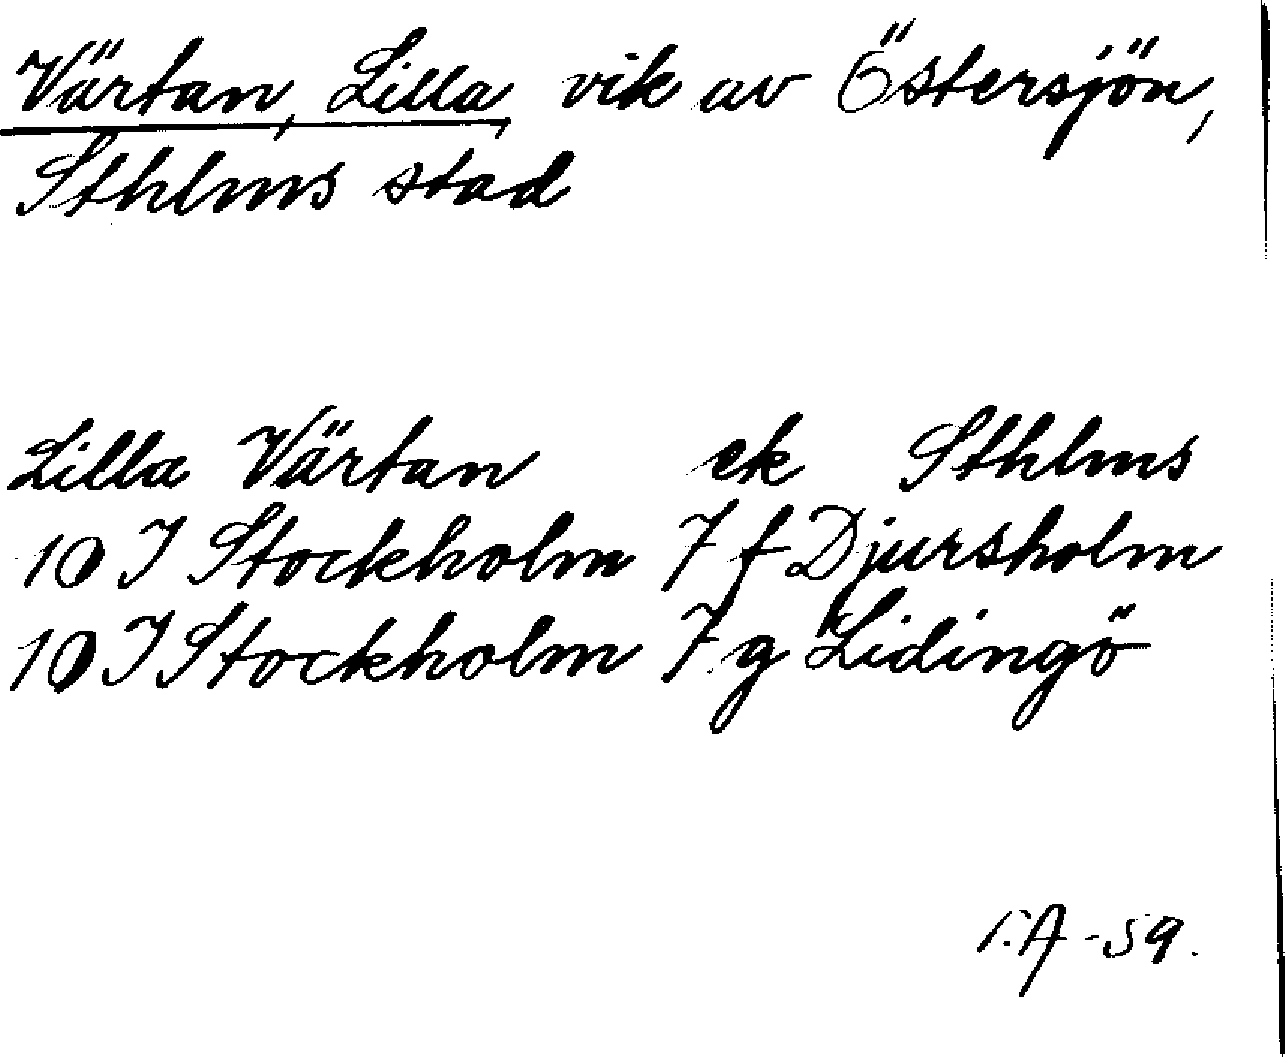 Värtan, Lilla, vik av Östersjön,
Sthlms stad
Lilla Värtan ek Sthlms
10 I Stockholm 7 f Djursholm
10 I Stockholm 7 g Lidingö
-59.